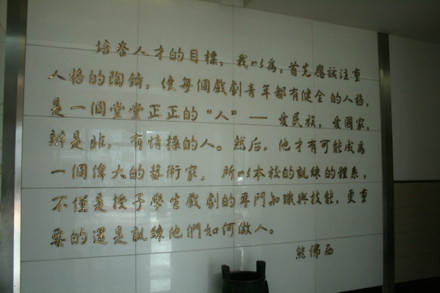 培养人才的目標，我以爲，首先應該注重
人格的陶鑄，使每個戲劇青年都有健全的人格，
是一個堂堂正正的“人”——愛民族，愛國家，
辨是非，有情操的人。然后，他才有可能成爲
一個偉大的藝術家。所以本校的訓練的體系，
不僅是授予學生戲劇的專門知識與技能，更重
要的還是訓練他們如何做人。
熊佛西